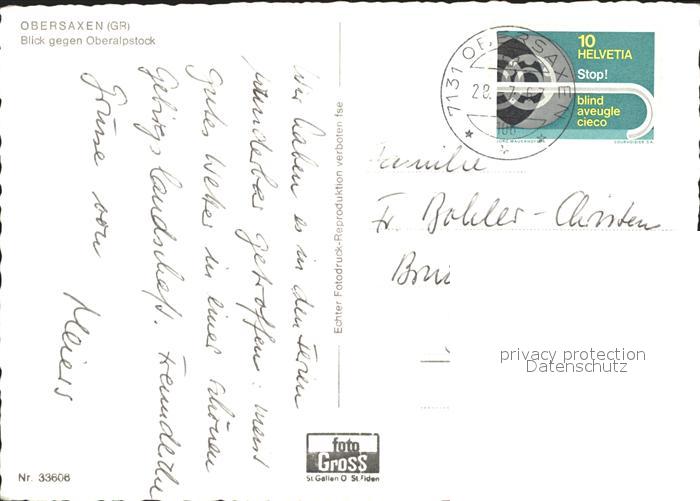 OBERSAXEN (GR)
Blick gegen Oberalpstock
Wir haben es in den Ferien
wunderbar getroffen: meist
gutes Wetter in einer schönen
Gebirgslandschaft. Freundliche
Grüsse von
Meiers
Echter Fotodruck-Reproduktion verboten fse
7131 OBERSAXEN
28. 7. 67
10
HELVETIA
Stop!
blind
aveugle
cieco
COURVOISIER S.A.
Familie
Fr. Bohler-Christen
privacy protection
Datenschutz
foto
GROSS
St. Gallen O St. Fiden
Nr. 33606